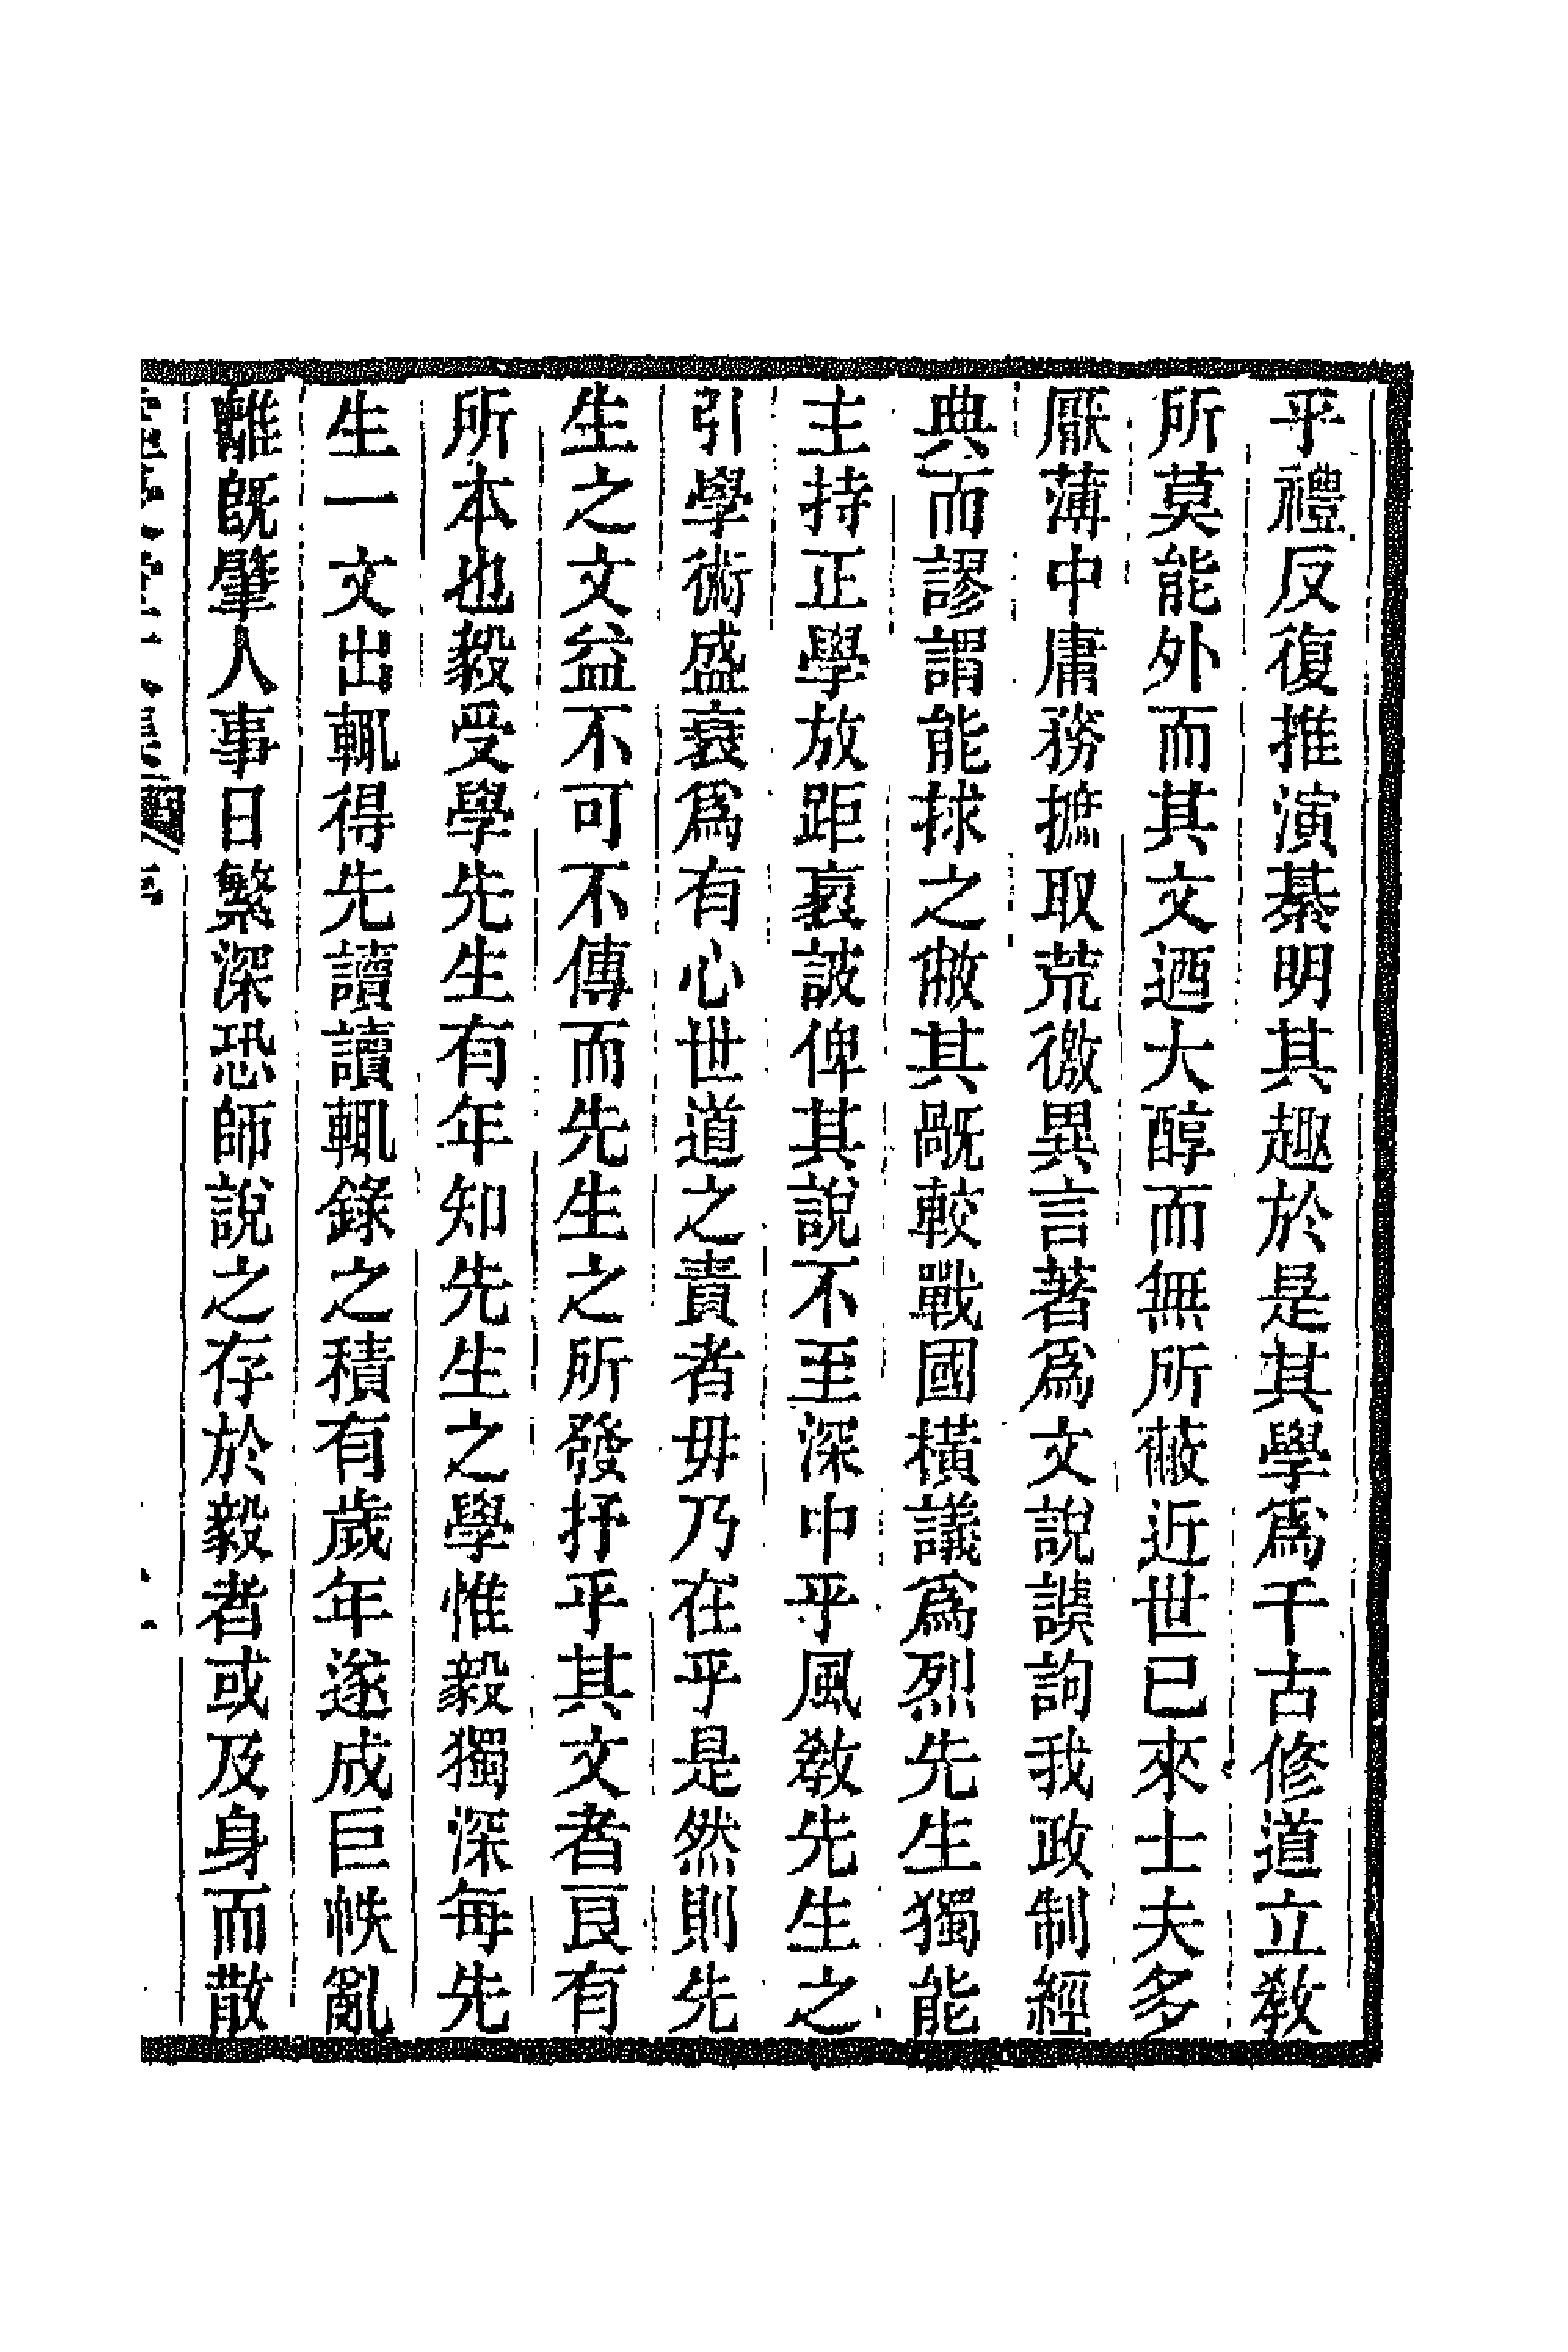 乎禮反復推演綦明其趣於是其學爲千古修道立敎
所莫能外而其文迺大醇而無所蔽近世已來士夫多
厭薄中庸務摭取荒徼異言著爲文說謨詢我政制經
典而謬謂能捄之敝其禍較戰國橫議爲烈先生獨能
主持正學放距衺詖俾其說不至深中乎風敎先生之
引學術盛衰爲有心世道之責者毋乃在乎是然則先
生之文益不可不傳而先生之所發抒乎其文者良有
所本也毅受學先生有年知先生之學惟毅獨深每先
生一文出輒得先讀讀輒錄之積有歲年遂成巨帙亂
離既肇人事日繁深恐師說之存於毅者或及身而散